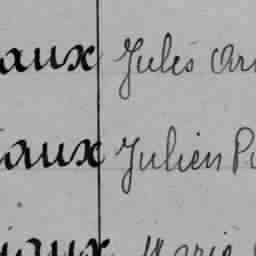 aux Jules Ar
iaux Julien Pi
iaux Marie